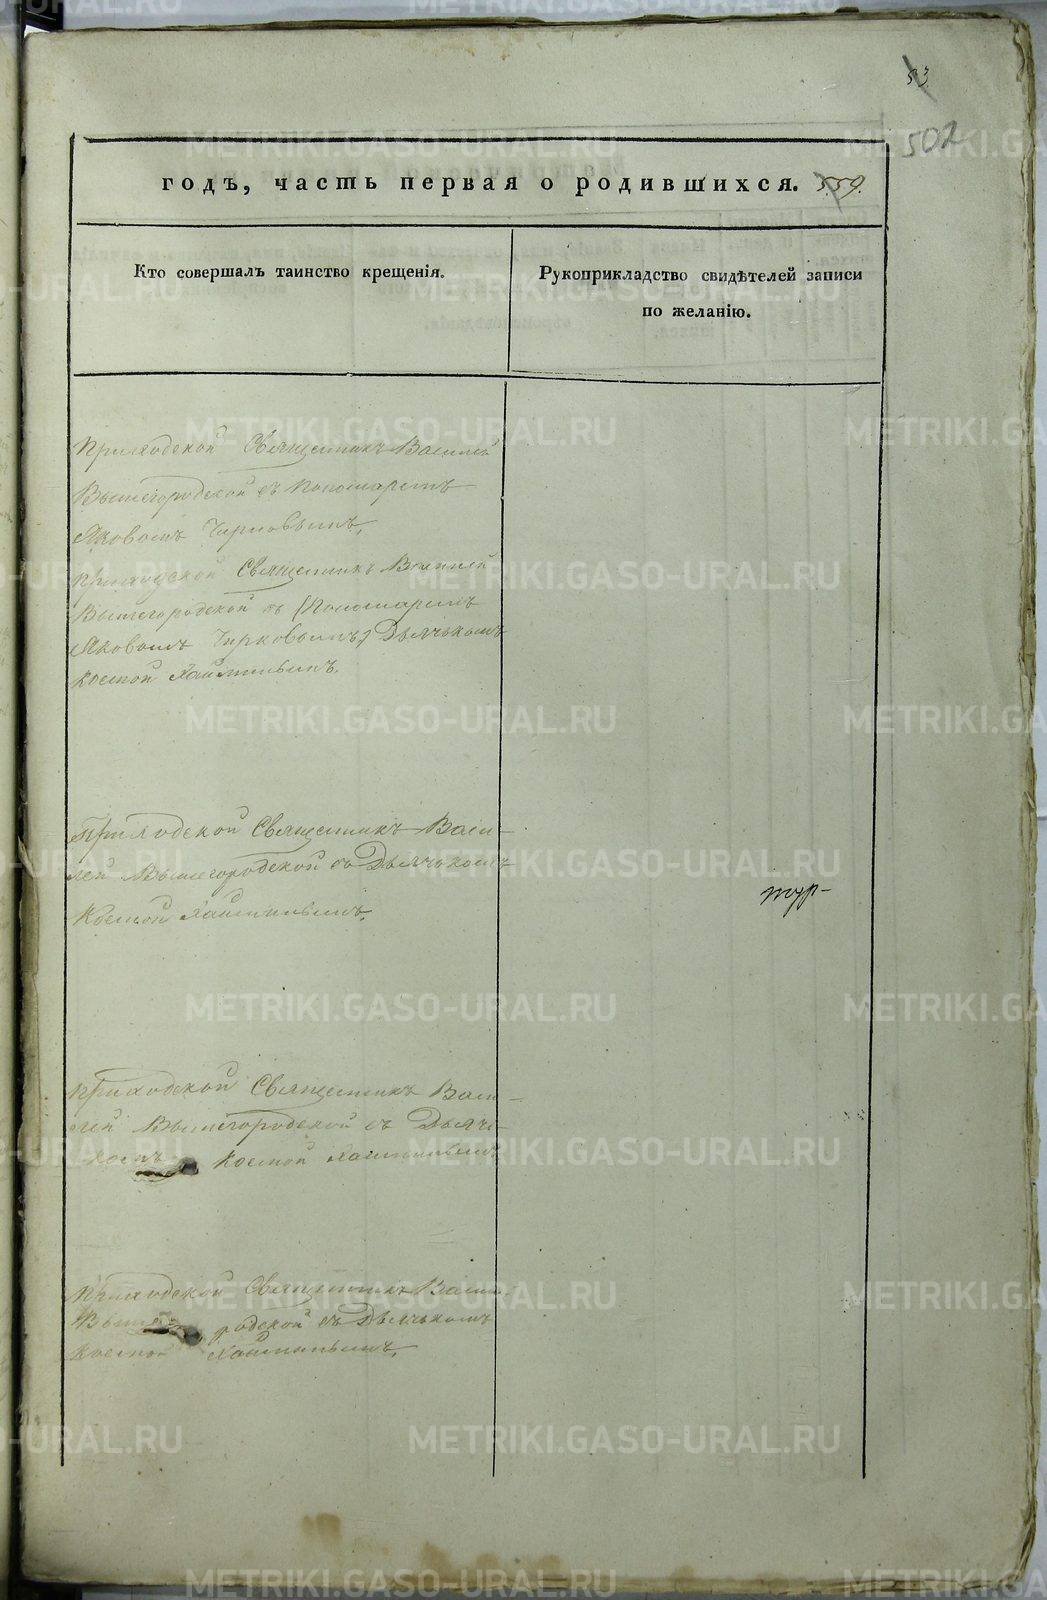 53
502
годъ, часть первая о родившихся. 559.
Кто совершалъ таинство крещенія.
Рукоприкладство свидѣтелей записи
по желанію.
Приходской Священникъ Василей
Вышегородской съ Пономаремъ
Яковомъ Чирковымъ,
Приходской Священникъ Василей
Вышегородской съ Пономаремъ
Яковомъ Чирковымъ, Дьячькомъ
Космой
Приходской Священникъ Васи-
лей Вышегородской съ Дьячькомъ
Космой
тур-
Приходской Священникъ Васи-
лей Вышегородской съ Дьячь-
комъ Космой
Приходской Священникъ Васил.
Выше родской съ Дьячькомъ
Космой
METRIKI.GASO-URAL.RU